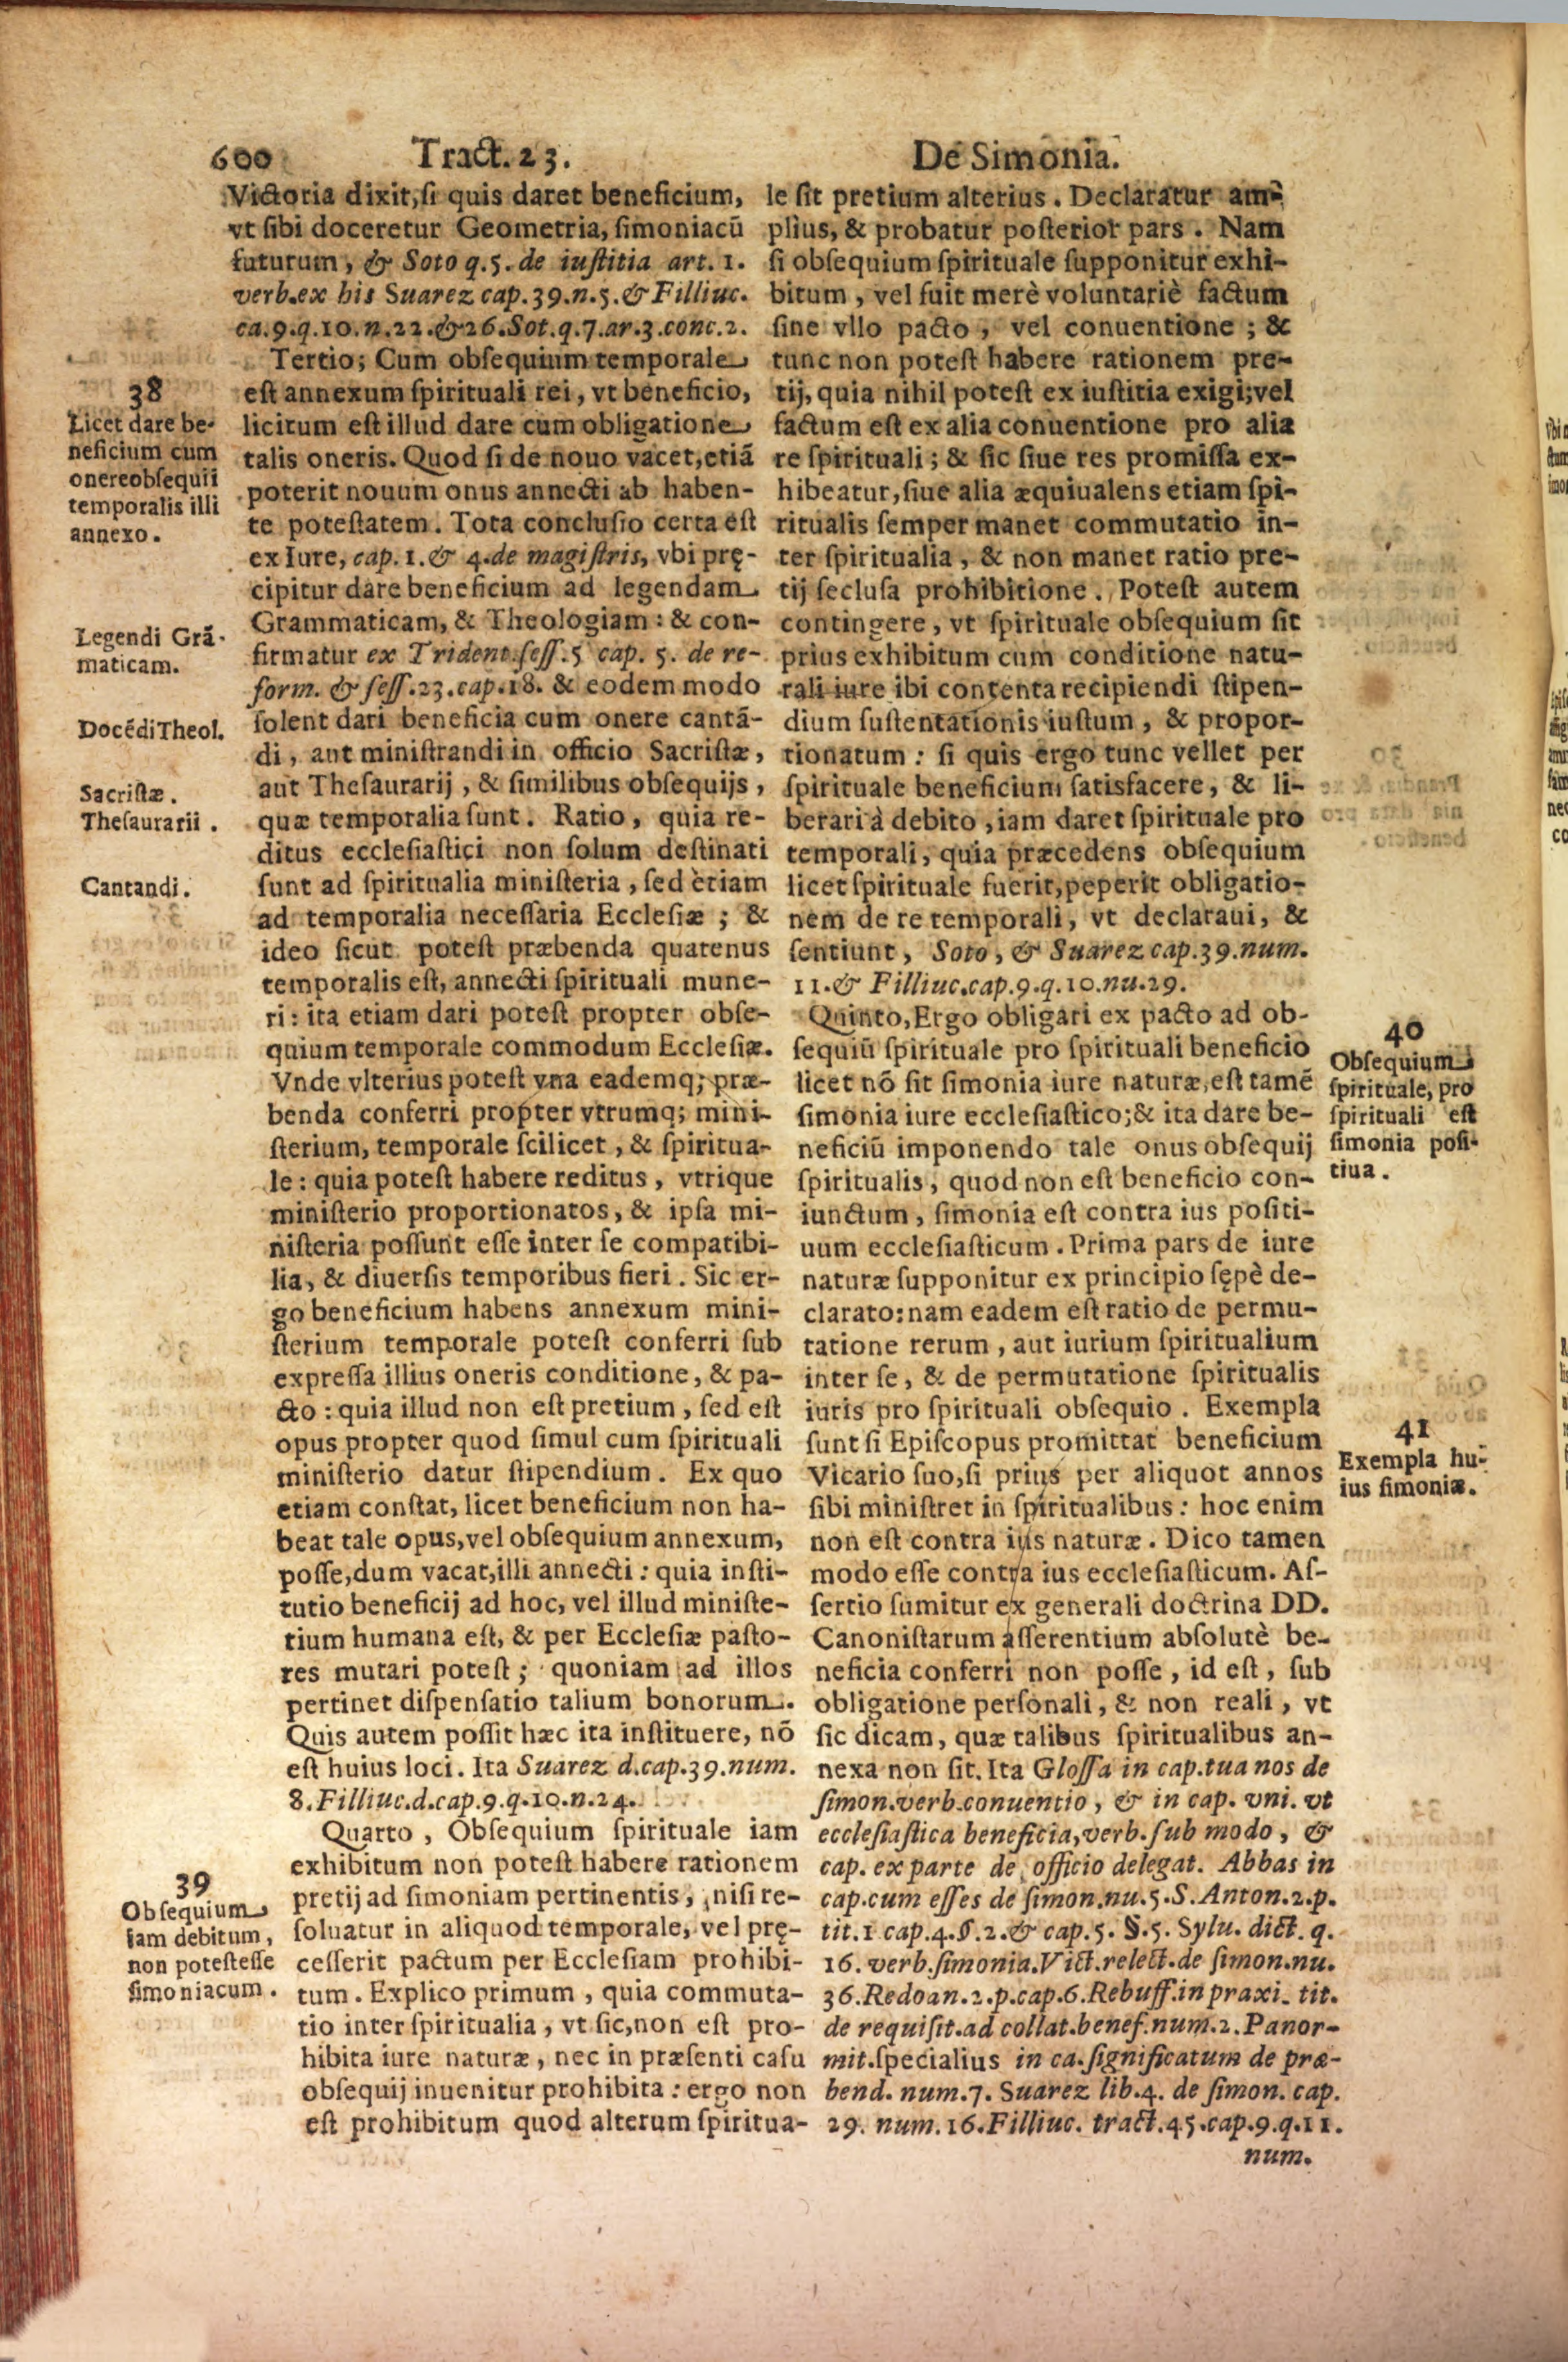 600 Tract. 23. De Simonia.
Victoria dixit, si quis daret beneficium,
vt sibi doceretur Geometria, simoniacũ
futurum, & Soto q.5. de iustitia art. 1.
verb.ex his Suarez cap.39.n.5.& Filliuc.
ca.9.q.10.n.22.&26.Sot.q.7.ar.3.conc.2.
Tertio; Cum obsequium temporale
est annexum spirituali rei, vt beneficio,
licitum est illud dare cum obligatione
talis oneris. Quod si de nouo vacet, etiã
poterit nouum onus annecti ab haben-
te potestatem. Tota conclusio certa est
ex Iure, cap. 1. & 4. de magistris, vbi prę-
cipitur dare beneficium ad legendam
Grammaticam, & Theologiam: & con-
firmatur ex Trident.sess.5 cap. 5. de re-
form. & sess.23.cap.18. & eodem modo
solent dari beneficia cum onere cantã-
di, aut ministrandi in officio Sacristæ,
aut Thesaurarij, & similibus obsequijs,
quæ temporalia sunt. Ratio, quia re-
ditus ecclesiastici non solum destinati
sunt ad spiritualia ministeria, sed ètiam
ad temporalia necessaria Ecclesiæ; &
ideo sicut potest præbenda quatenus
temporalis est, annecti spirituali mune-
ri: ita etiam dari potest propter obse-
quium temporale commodum Ecclesiæ.
Vnde vlterius potest vna eademq; præ-
benda conferri propter vtrumq; mini-
sterium, temporale scilicet, & spiritua-
le: quia potest habere reditus, vtrique
ministerio proportionatos, & ipsa mi-
nisteria possunt esse inter se compatibi-
lia, & diuersis temporibus fieri. Sic er-
go beneficium habens annexum mini-
sterium temporale potest conferri sub
expressa illius oneris conditione, & pa-
cto: quia illud non est pretium, sed est
opus propter quod simul cum spirituali
ministerio datur stipendium. Ex quo
etiam constat, licet beneficium non ha-
beat tale opus, vel obsequium annexum,
posse, dum vacat, illi annecti: quia insti-
tutio beneficij ad hoc, vel illud ministe-
rium humana est, & per Ecclesiæ pasto-
res mutari potest; quoniam ad illos
pertinet dispensatio talium bonorum.
Quis autem possit hæc ita instituere, nõ
est huius loci. Ita Suarez d.cap.39.num.
8. Filliuc.d.cap.9.q.10.n.24.
Quarto, Obsequium spirituale iam
exhibitum non potest habere rationem
pretij ad simoniam pertinentis, nisi re-
soluatur in aliquod temporale, vel pręֽ-
cesserit pactum per Ecclesiam prohibi-
tum. Explico primum, quia commuta-
tio inter spiritualia, vt sic, non est pro-
hibita iure naturæ, nec in præsenti casu
obsequij inuenitur prohibita: ergo non
est prohibitum quod alterum spiritua-
38
Licet dare be-
neficium cum
onere obsequii
temporalis illi
annexo.
Legendi Grã-
maticam.
Docẽdi Theol.
Sacristæ.
Thesaurarii.
Cantandi.
39
Obsequium
iam debitum,
non potest esse
simoniacum.
le sit pretium alterius. Declaratur am-
plius, & probatur posterior pars. Nam
si obsequium spirituale supponitur exhi-
bitum, vel fuit merè voluntariè factum
sine vllo pacto, vel conuentione; &
tunc non potest habere rationem pre-
tij, quia nihil potest ex iustitia exigi; vel
factum est ex alia conuentione pro alia
re spirituali; & sic siue res promissa ex-
hibeatur, siue alia æquiualens etiam spi-
ritualis semper manet commutatio in-
ter spiritualia, & non manet ratio pre-
tij seclusa prohibitione. Potest autem
contingere, vt spirituale obsequium sit
prius exhibitum cum conditione natu-
rali iure ibi contenta recipiendi stipen-
dium sustentationis iustum, & propor-
tionatum: si quis ergo tunc vellet per
spirituale beneficium satisfacere, & li-
berari à debito, iam daret spirituale pro
temporali, quia præcedens obsequium
licet spirituale fuerit, peperit obligatio-
nem de re temporali, vt declaraui, &
sentiunt, Soto, & Suarez cap.39.num.
11.& Filliuc.cap.9.q.10.nu.29.
Quinto, Ergo obligari ex pacto ad ob-
sequiũ spirituale pro spirituali beneficio
licet nõ sit simonia iure naturæ, est tamẽ
simonia iure ecclesiastico; & ita dare be-
neficiũ imponendo tale onus obsequij
spiritualis, quod non est beneficio con-
iunctum, simonia est contra ius positi-
uum ecclesiasticum. Prima pars de iure
naturæ supponitur ex principio sępè de-
clarato: nam eadem est ratio de permu-
tatione rerum, aut iurium spiritualium
inter se, & de permutatione spiritualis
iuris pro spirituali obsequio. Exempla
sunt si Episcopus promittat beneficium
Vicario suo, si prius per aliquot annos
sibi ministret in spiritualibus: hoc enim
non est contra ius naturæ. Dico tamen
modo esse contra ius ecclesiasticum. As-
sertio sumitur ex generali doctrina DD.
Canonistarum asserentium absolutè be-
neficia conferri non posse, id est, sub
obligatione personali, & non reali, vt
sic dicam, quæ talibus spiritualibus an-
nexa non sit. Ita Glossa in cap.tua nos de
simon.verb.conuentio, & in cap. vni. vt
ecclesiastica beneficia, verb.sub modo, &
cap. ex parte de officio delegat. Abbas in
cap.cum esses de simon.nu.5.S.Anton.2.p.
tit.1 cap.4.§.2.& cap.5. §.5. Sylu. dict. q.
16. verb.simonia.Vict.relect.de simon.nu.
36.Redoan.2.p.cap.6.Rebuff.in praxi. tit.
de requisit.ad collat.benef.num.2.Panor-
mit.specialius in ca.significatum de præ-
bend. num.7. Suarez lib.4. de simon. cap.
29. num.16.Filliuc. tract.45.cap.9.q.11.
num.
40
Obsequium
spirituale, pro
spirituali est
simonia posi-
tiua.
41
Exempla hu-
ius simoniæ.